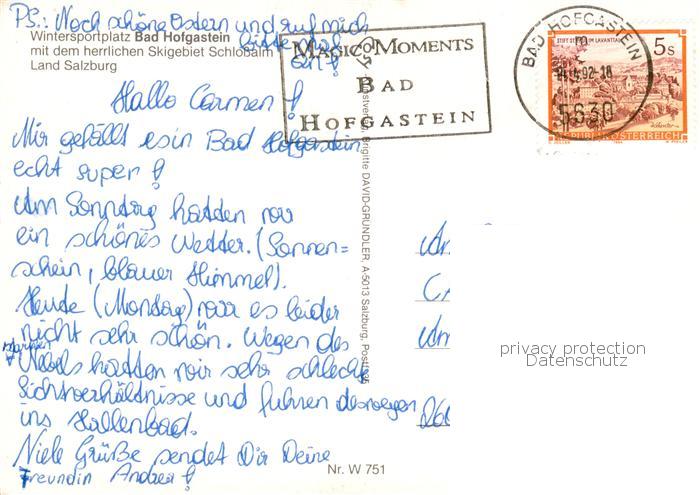 PS.: Noch schöne Ostern und ruf mich
bitte mal
an!
Wintersportplatz Bad Hofgastein
mit dem herrlichen Skigebiet Schloßalm
Land Salzburg
MAGIC MOMENTS
BAD
HOFGASTEIN
BAD HOFGASTEIN
5630
5s
REPUBLIK ÖSTERREICH
Hallo Carmen!
Mir gefällt es in Bad Hofgastein
echt super!
Am Sonntag hatten wir
ein schönes Wetter. (Sonnen=
schein, blauer Himmel).
Heute (Montag) war es leider
nicht sehr schön. Wegen des
Nebels hatten wir sehr schlechte
Sichtverhältnisse und fuhren deswegen
ins Hallenbad.
Viele Grüße sendet Dir Deine
Freundin Andrea!
Brigitte DAVID-GRUNDLER, A-5013 Salzburg, Postfach
An
Nr. W 751
privacy protection
Datenschutz